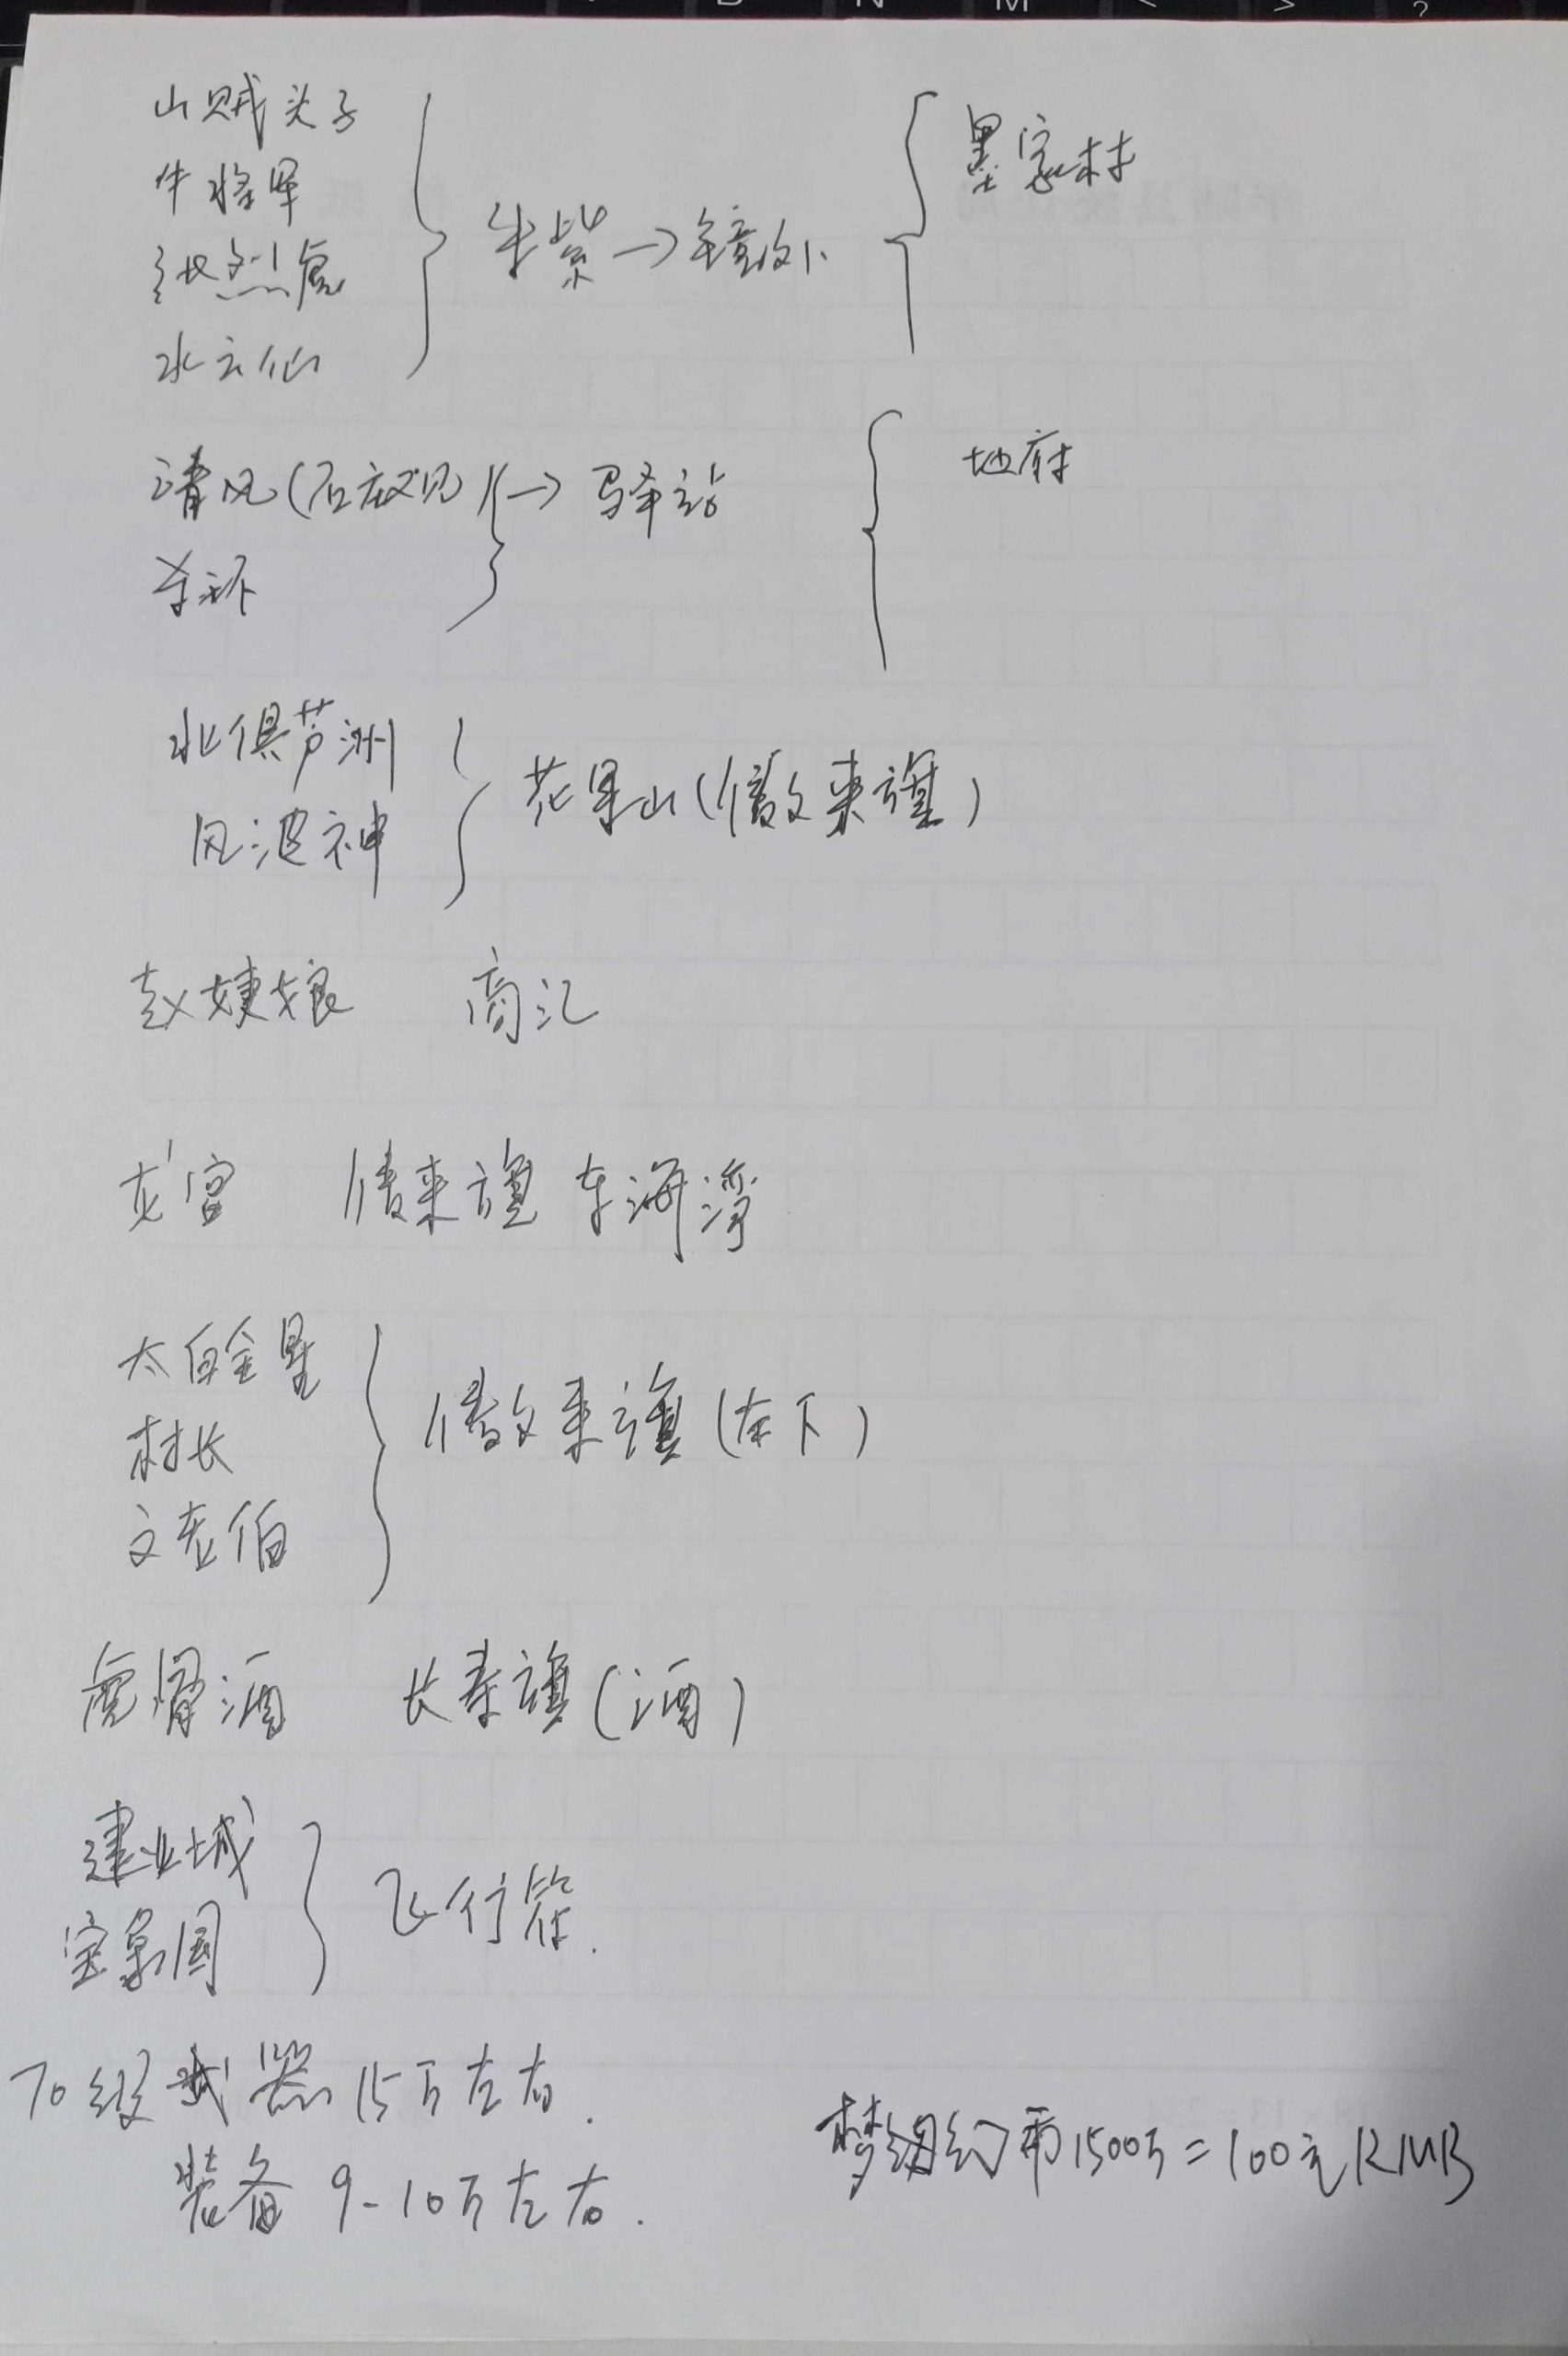 山贼头子
牛将军
池烈虎
水云仙
朱紫→境外
墨家村
清风(石敢当)→驿站
地府
北俱芦洲
风波神
花果山(傲来旗)
赵姨娘 商汇
龙宫 傲来旗 东海湾
太白金星
村长
文老伯
傲来旗(右下)
虎骨酒 长寿旗(酒)
建业城
宝象国
飞行符.
70级武器15万左右.
装备 9-10万左右.
梦幻币1500万=100元RMB